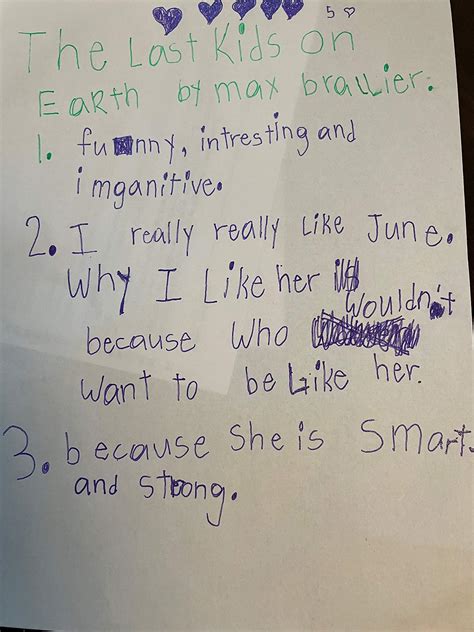 5 ♡
The Last Kids on
Earth by max brallier:
1. funny, intresting and
imganitive.
2. I really really Like June.
Why I Like her is
because who wouldn't
want to be Like her.
3. because she is smart
and strong.